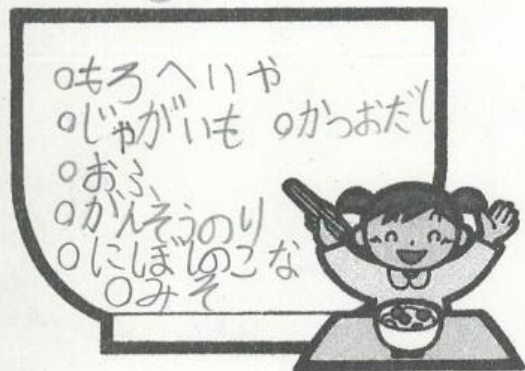 ○もろへいや
○じゃがいも ○かつおだし
○おふ
○がんそうのり
○にぼしのこな
○みそ